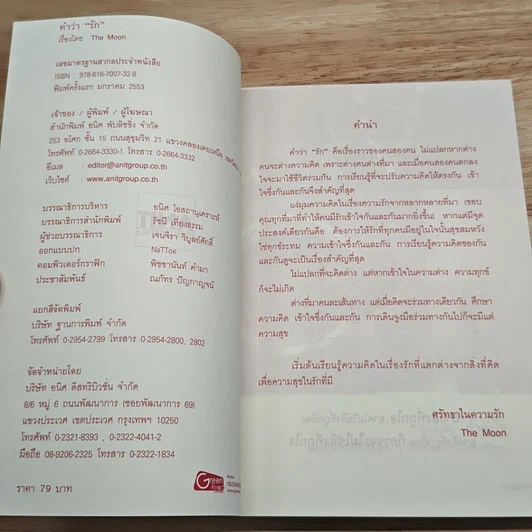 คำว่า "รัก"
เรื่องโดย The Moon
เลขมาตรฐานสากลประจำหนังสือ
ISBN : 978-616-7007-32-8
พิมพ์ครั้งแรก มกราคม 2553
เจ้าของ / ผู้พิมพ์ / ผู้โฆษณา
สำนักพิมพ์ อนิศ พับลิชชิ่ง จำกัด
253 อโศก ชั้น 15 ถนนสุขุมวิท 21 แขวงคลองเตยเหนือ
โทรศัพท์ 0-2664-3330-1 โทรสาร 0-2664-3332
อีเมล : editor@anitgroup.co.th
เว็บไซต์ : www.anitgroup.co.th
บรรณาธิการบริหาร อนิศ โอสถานุเคราะห์
บรรณาธิการสำนักพิมพ์ รัชนี เที่ยงธรรม
ผู้ช่วยบรรณาธิการ เจนจิรา วิบูลย์ศักดิ์
ออกแบบปก NaTToe
คอมพิวเตอร์กราฟิก พิชชานันท์ คำมา
ประชาสัมพันธ์ ณภัทร ปัญกาญจน์
แยกสีจัดพิมพ์
บริษัท ฐานการพิมพ์ จำกัด
โทรศัพท์ 0-2954-2799 โทรสาร 0-2954-2800, 2802
จัดจำหน่ายโดย
บริษัท อนิศ ดิสทริบิวชั่น จำกัด
8/6 หมู่ 6 ถนนพัฒนาการ (ซอยพัฒนาการ 69)
แขวงประเวศ เขตประเวศ กรุงเทพฯ 10250
โทรศัพท์ 0-2321-8393 , 0-2322-4041-2
มือถือ 08-9206-2325 โทรสาร 0-2322-1834
ราคา 79 บาท
Green
คำนำ
คำว่า "รัก" คือเรื่องราวของคนสองคน ไม่แปลกหากต่าง
คนจะต่างความคิด เพราะต่างคนต่างที่มา และเมื่อคนสองคนตกลง
ใจจะมาใช้ชีวิตร่วมกัน การเรียนรู้ที่จะปรับความคิดให้ตรงกัน เข้า
ใจซึ่งกันและกันจึงสำคัญที่สุด
แง่มุมความคิดในเรื่องความรักจากหลากหลายที่มา (ขอบ
คุณทุกที่มาที่ทำให้คนมีรักเข้าใจกันและกันมากยิ่งขึ้น) หากแต่มีจุด
ประสงค์เดียวกันคือ ต้องการให้รักที่ทุกคนมีอยู่ในใจนั้นสุขสมหวัง
ใช่ทุกข์ระทม ความเข้าใจซึ่งกันและกัน การเรียนรู้ความคิดของกัน
และกันดูจะเป็นเรื่องสำคัญที่สุด
ไม่แปลกที่จะคิดต่าง แต่หากเข้าใจในความต่าง ความทุกข์
ก็จะไม่เกิด
ต่างที่มาคนละเส้นทาง แต่เมื่อคิดจะร่วมทางเดียวกัน ศึกษา
ความคิด เข้าใจซึ่งกันและกัน การเดินจูงมือร่วมทางกันไปก็จะมีแต่
ความสุข
เริ่มต้นเรียนรู้ความคิดในเรื่องรักที่แตกต่างจากสิ่งที่คิด
เพื่อความสุขในรักที่มี
ศรัทธาในความรัก
The Moon